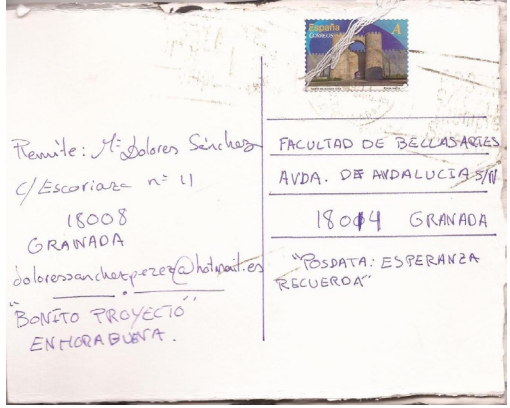 España
CORREOS
A
Remite: Mª Dolores Sánchez
c/Escoriaza nº 11
18008
GRANADA
doloressanchezperez@hotmail.es
"BONITO PROYECTO"
ENHORABUENA.
FACULTAD DE BELLAS ARTES
AVDA. DE ANDALUCIA S/N
18014 GRANADA
"POSDATA: ESPERANZA
RECUERDA"